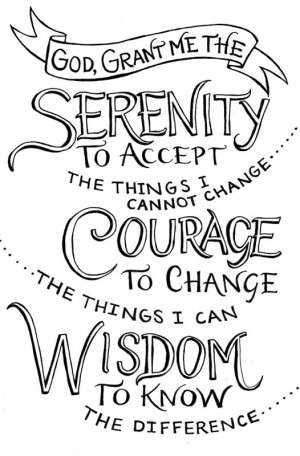 GOD, GRANT ME THE
SERENITY
TO ACCEPT
THE THINGS I
CANNOT CHANGE......
COURAGE
TO CHANGE
......THE THINGS I CAN
WISDOM
TO KNOW
THE DIFFERENCE......